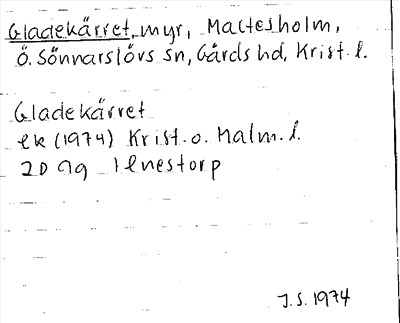 Gladekärret, myr, Maltesholm,
Ö. Sönnarslövs sn, Gärds hd, Krist. l.
Gladekärret
ek (1974) Krist. o. Malm. l.
2D 9g Ilnestorp
J.S. 1974